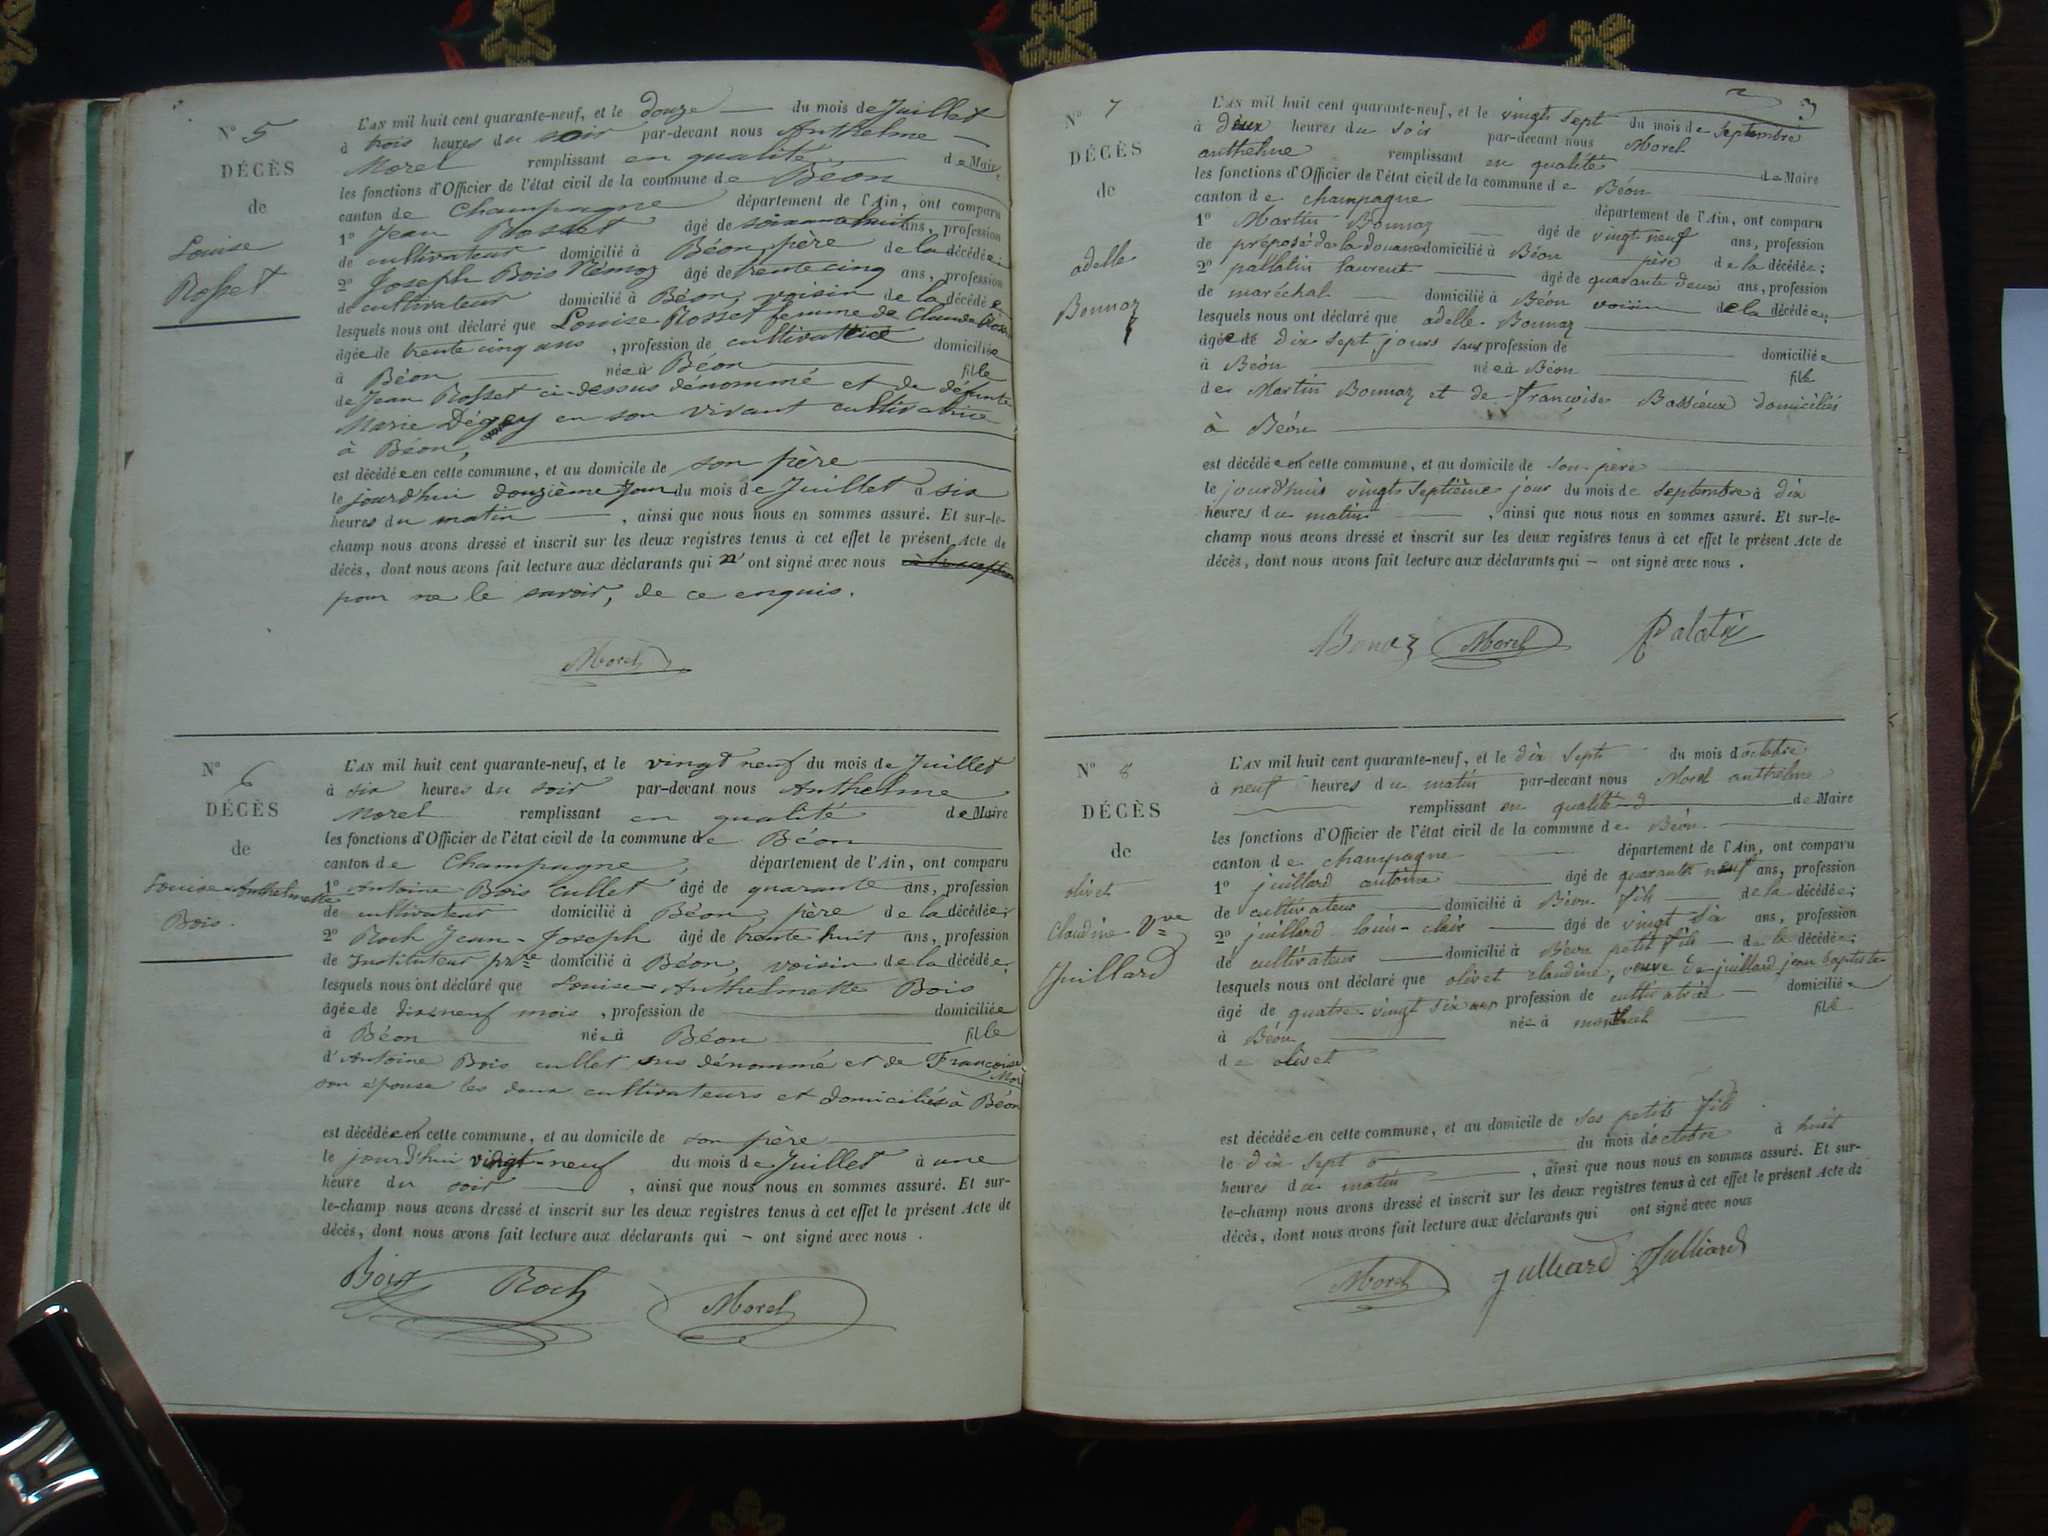 N° 5
DÉCÈS
de
Louise
Rosset
L'AN mil huit cent quarante-neuf, et le douze du mois de Juillet
à trois heures du soir par-devant nous Anthelme
Morel remplissant en qualité de Maire
les fonctions d'Officier de l'état civil de la commune de Béon
canton de Champagne département de l'Ain, ont comparu
1° Jean Rosset âgé de ans, profession
de cultivateur domicilié à Béon, père de la décédée;
2° Joseph Bois Némoz âgé de trente cinq ans, profession
de cultivateur domicilié à Béon, voisin de la décédée
lesquels nous ont déclaré que Louise Rosset femme de Claude
âgée de trente cinq ans, profession de cultivatrice domiciliée
à Béon née à Béon fille
de Jean Rosset ci-dessus dénommé et de défunte
Marie en son vivant cultivatrice
à Béon,
est décédée en cette commune, et au domicile de son père
le jourd'hui douzième jour du mois de Juillet à six
heures du matin, ainsi que nous nous en sommes assuré. Et sur-le-
champ nous avons dressé et inscrit sur les deux registres tenus à cet effet le présent Acte de
décès, dont nous avons fait lecture aux déclarants qui n'ont signé avec nous
pour ne le savoir, de ce enquis.
Morel
N° 6
DÉCÈS
de
Louise-Anthelmette
Bois.
L'AN mil huit cent quarante-neuf, et le vingt neuf du mois de Juillet
à six heures du soir par-devant nous Anthelme
Morel remplissant en qualité de Maire
les fonctions d'Officier de l'état civil de la commune de Béon
canton de Champagne, département de l'Ain, ont comparu
1° Antoine Bois Cullet âgé de quarante ans, profession
de cultivateur domicilié à Béon, père de la décédée;
2° Roch Jean-Joseph âgé de trente huit ans, profession
de Instituteur pre domicilié à Béon, voisin de la décédée,
lesquels nous ont déclaré que Louise-Anthelmette Bois
âgée de dix neuf mois, profession de domiciliée
à Béon née à Béon fille
d'Antoine Bois cullet sus dénommé et de Françoise
son épouse les deux cultivateurs et domiciliés à Béon
est décédée en cette commune, et au domicile de son père
le jourd'hui vingt-neuf du mois de Juillet à une
heure du soir, ainsi que nous nous en sommes assuré. Et sur-
le-champ nous avons dressé et inscrit sur les deux registres tenus à cet effet le présent Acte de
décès, dont nous avons fait lecture aux déclarants qui – ont signé avec nous.
Bois Roch Morel
3
N° 7
DÉCÈS
de
adelle
Bonnaz
L'AN mil huit cent quarante-neuf, et le vingt sept du mois de septembre
à deux heures du soir par-devant nous Morel
anthelme remplissant en qualité de Maire
les fonctions d'Officier de l'état civil de la commune de Béon
canton de champagne département de l'Ain, ont comparu
1° Martin Bonnaz âgé de vingt neuf ans, profession
de préposé de la douane domicilié à Béon père de la décédée;
2° pallatin laurent âgé de quarante deux ans, profession
de maréchal domicilié à Béon voisin de la décédée;
lesquels nous ont déclaré que adelle Bonnaz
âgée de dix sept jours sans profession de domiciliée
à Béon née à Béon fille
de Martin Bonnaz et de françoise Bassieux domiciliés
à Béon
est décédée en cette commune, et au domicile de son père
le jourd'hui vingt septième jour du mois de septembre à dix
heures du matin, ainsi que nous nous en sommes assuré. Et sur-le-
champ nous avons dressé et inscrit sur les deux registres tenus à cet effet le présent Acte de
décès, dont nous avons fait lecture aux déclarants qui – ont signé avec nous.
Bonaz Morel Palatin
N° 8
DÉCÈS
de
olivet
Claudine Vve
Juillard
L'AN mil huit cent quarante-neuf, et le dix sept du mois d'octobre
à neuf heures du matin par-devant nous Morel anthelme
remplissant en qualité de Maire
les fonctions d'Officier de l'état civil de la commune de Béon
canton de champagne département de l'Ain, ont comparu
1° juillard antoine âgé de quarante neuf ans, profession
de cultivateur domicilié à Béon fils de la décédée;
2° juillard louis-clair âgé de vingt six ans, profession
de cultivateur domicilié à Béon petit fils de la décédée;
lesquels nous ont déclaré que olivet claudine, veuve de juillard jean baptiste
âgé de quatre-vingt six ans profession de cultivatrice domiciliée
à Béon née à fille
de olivet
est décédée en cette commune, et au domicile de ses petits fils
le dix sept du mois d'octobre à huit
heures du matin, ainsi que nous nous en sommes assuré. Et sur-
le-champ nous avons dressé et inscrit sur les deux registres tenus à cet effet le présent Acte de
décès, dont nous avons fait lecture aux déclarants qui ont signé avec nous
Morel Julliard Julliard